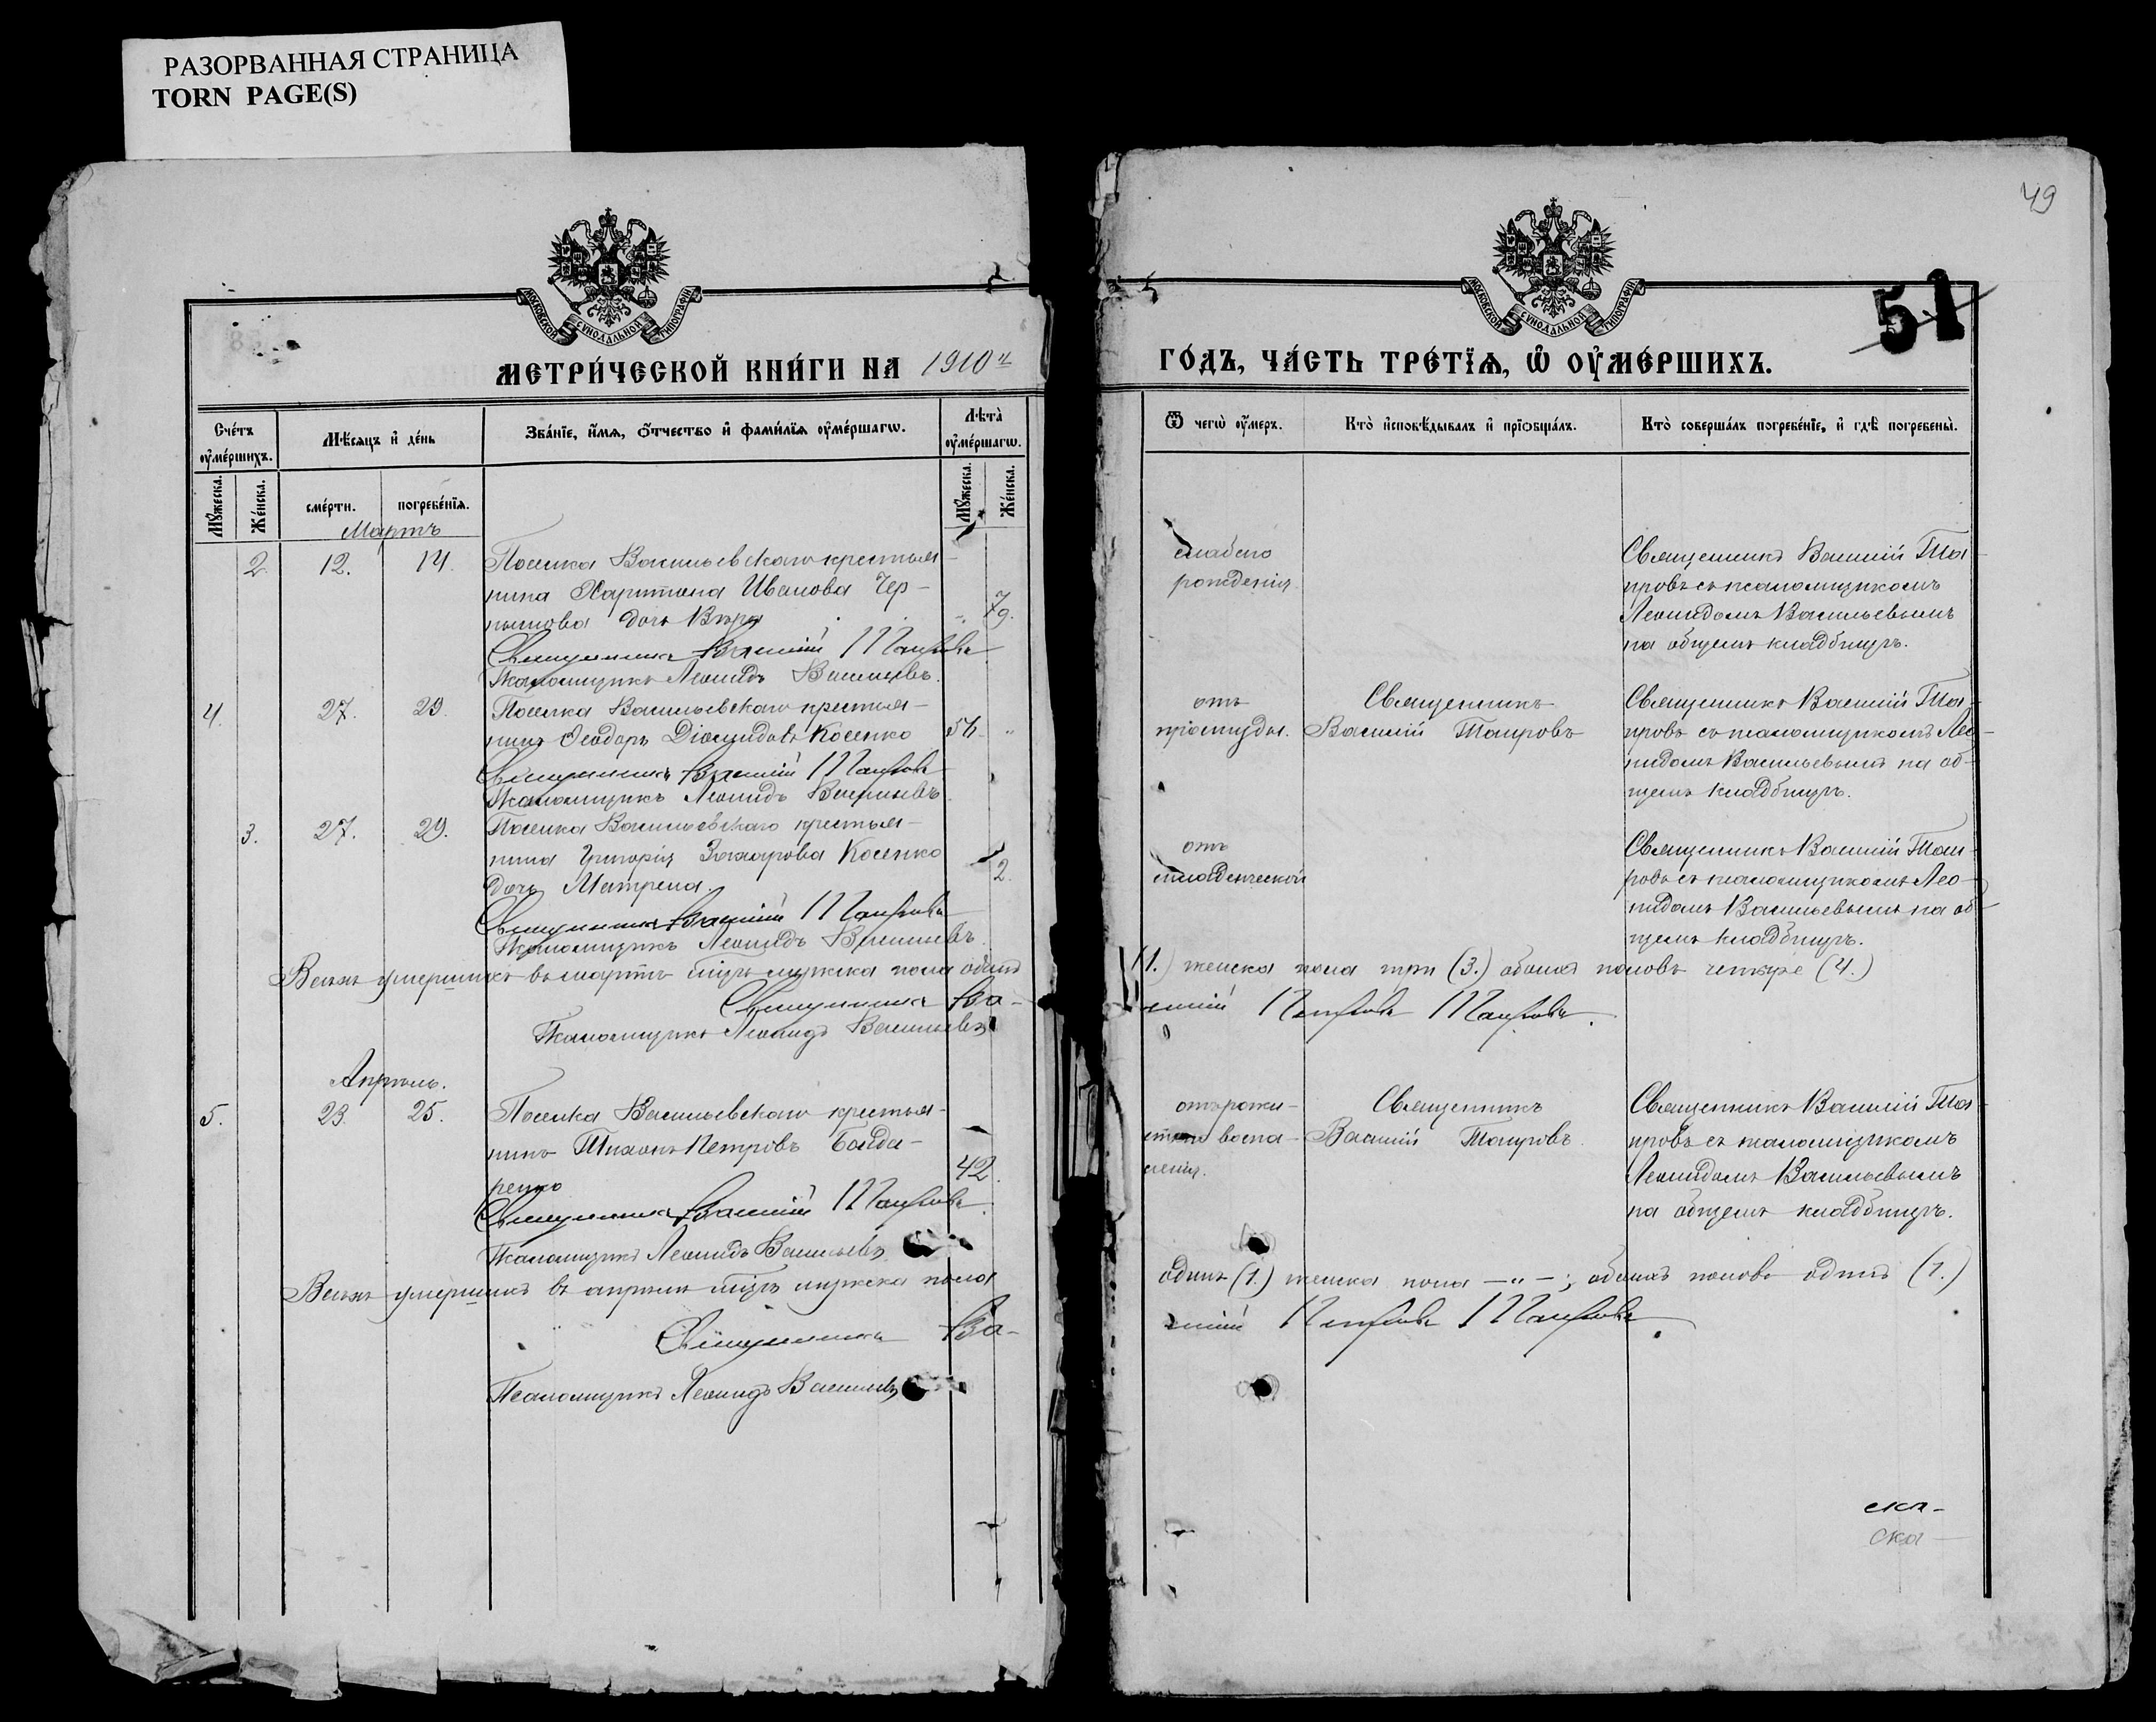 РАЗОРВАННАЯ СТРАНИЦА
TORN PAGE(S)
49
51
МОСКОВСКОЙ СѴНОДАЛЬНОЙ ТИПОГРАФІИ
МОСКОВСКОЙ СѴНОДАЛЬНОЙ ТИПОГРАФІИ
МЕТРИ́ЧЕСКОЙ КНИ́ГИ НА 1910й
ГО́ДЪ, ЧА́СТЬ ТРЕ́ТЇѦ, Ѡ҆ ОУ҆МЕ́РШИХЪ.
Сче́тъ оу҆ме́ршихъ.
Мѣ́сяцъ и҆ де́нь
Зва́нїе, и҆́мѧ, ѻ҆́тчество и҆ фами́лїѧ оу҆ме́ршагѡ.
Лѣта̀ оу҆ме́ршагѡ.
Му́жеска.
Же́нска.
сме́рти.
погребе́нїѧ.
Му́жеска.
Же́нска.
Ѿ чегѡ̀ оу҆́меръ.
Кто̀ и҆сповѣ́дывалъ и҆ прїѡбща́лъ.
Кто̀ соверша́лъ погребе́нїе, и҆ гдѣ̀ погребены̀.
Мартъ
2. 12. 14. Поселка Васильевскаго крестья-
нина Харитона Иванова Чер-
нышова дочь Вѣра
Священникъ Василій Таировъ
Псаломщикъ Леонидъ Васильевъ.
слабаго
рожденія.
Священникъ Василій Таи-
ировъ съ псаломщикомъ
Леонидомъ Васильевымъ
на общемъ кладбищѣ.
4. 27. 29. Поселка Васильевскаго крестья-
нинъ Ѳеодоръ Діомидовъ Косенко
Священникъ Василій Таировъ
Псаломщикъ Леонидъ Васильевъ
отъ
простуды.
Священникъ
Василій Таировъ
Священникъ Василій Таи-
ровъ съ псаломщикомъ Лео-
нидомъ Васильевымъ на об-
щемъ кладбищѣ.
3. 27. 29. Поселка Васильевскаго крестья-
нина Григорія Захарова Косенко 2.
дочь Матрена.
Священникъ Василій Таировъ
Псаломщикъ Леонидъ Васильевъ.
отъ
младенческой
Священникъ Василій Таи-
ровъ съ псаломщикомъ Лео-
нидомъ Васильевымъ на об-
щемъ кладбищѣ.
Всѣхъ умершихъ въ мартѣ м-цѣ мужска пола одинъ (1.) женска пола три (3.) обоихъ половъ четыре (4.)
Священникъ Василій Таировъ
Псаломщикъ Леонидъ Васильевъ
Апрѣль.
5. 23. 25. Поселка Васильевскаго крестья-
нинъ Тихонъ Петровъ Бонда-
ренко 42.
Священникъ Василій Таировъ.
Псаломщикъ Леонидъ Васильевъ
воспа-
ленія.
Священникъ
Василій Таировъ.
Священникъ Василій Таи-
ровъ съ псаломщикомъ
Леонидомъ Васильевымъ
на общемъ кладбищѣ.
Всѣхъ умершихъ въ апрѣлѣ м-цѣ мужска пола одинъ (1.) женска пола — „ — ; обоихъ половъ одинъ (1.)
Священникъ Василій Таировъ
Псаломщикъ Леонидъ Васильевъ
ска-
ска-